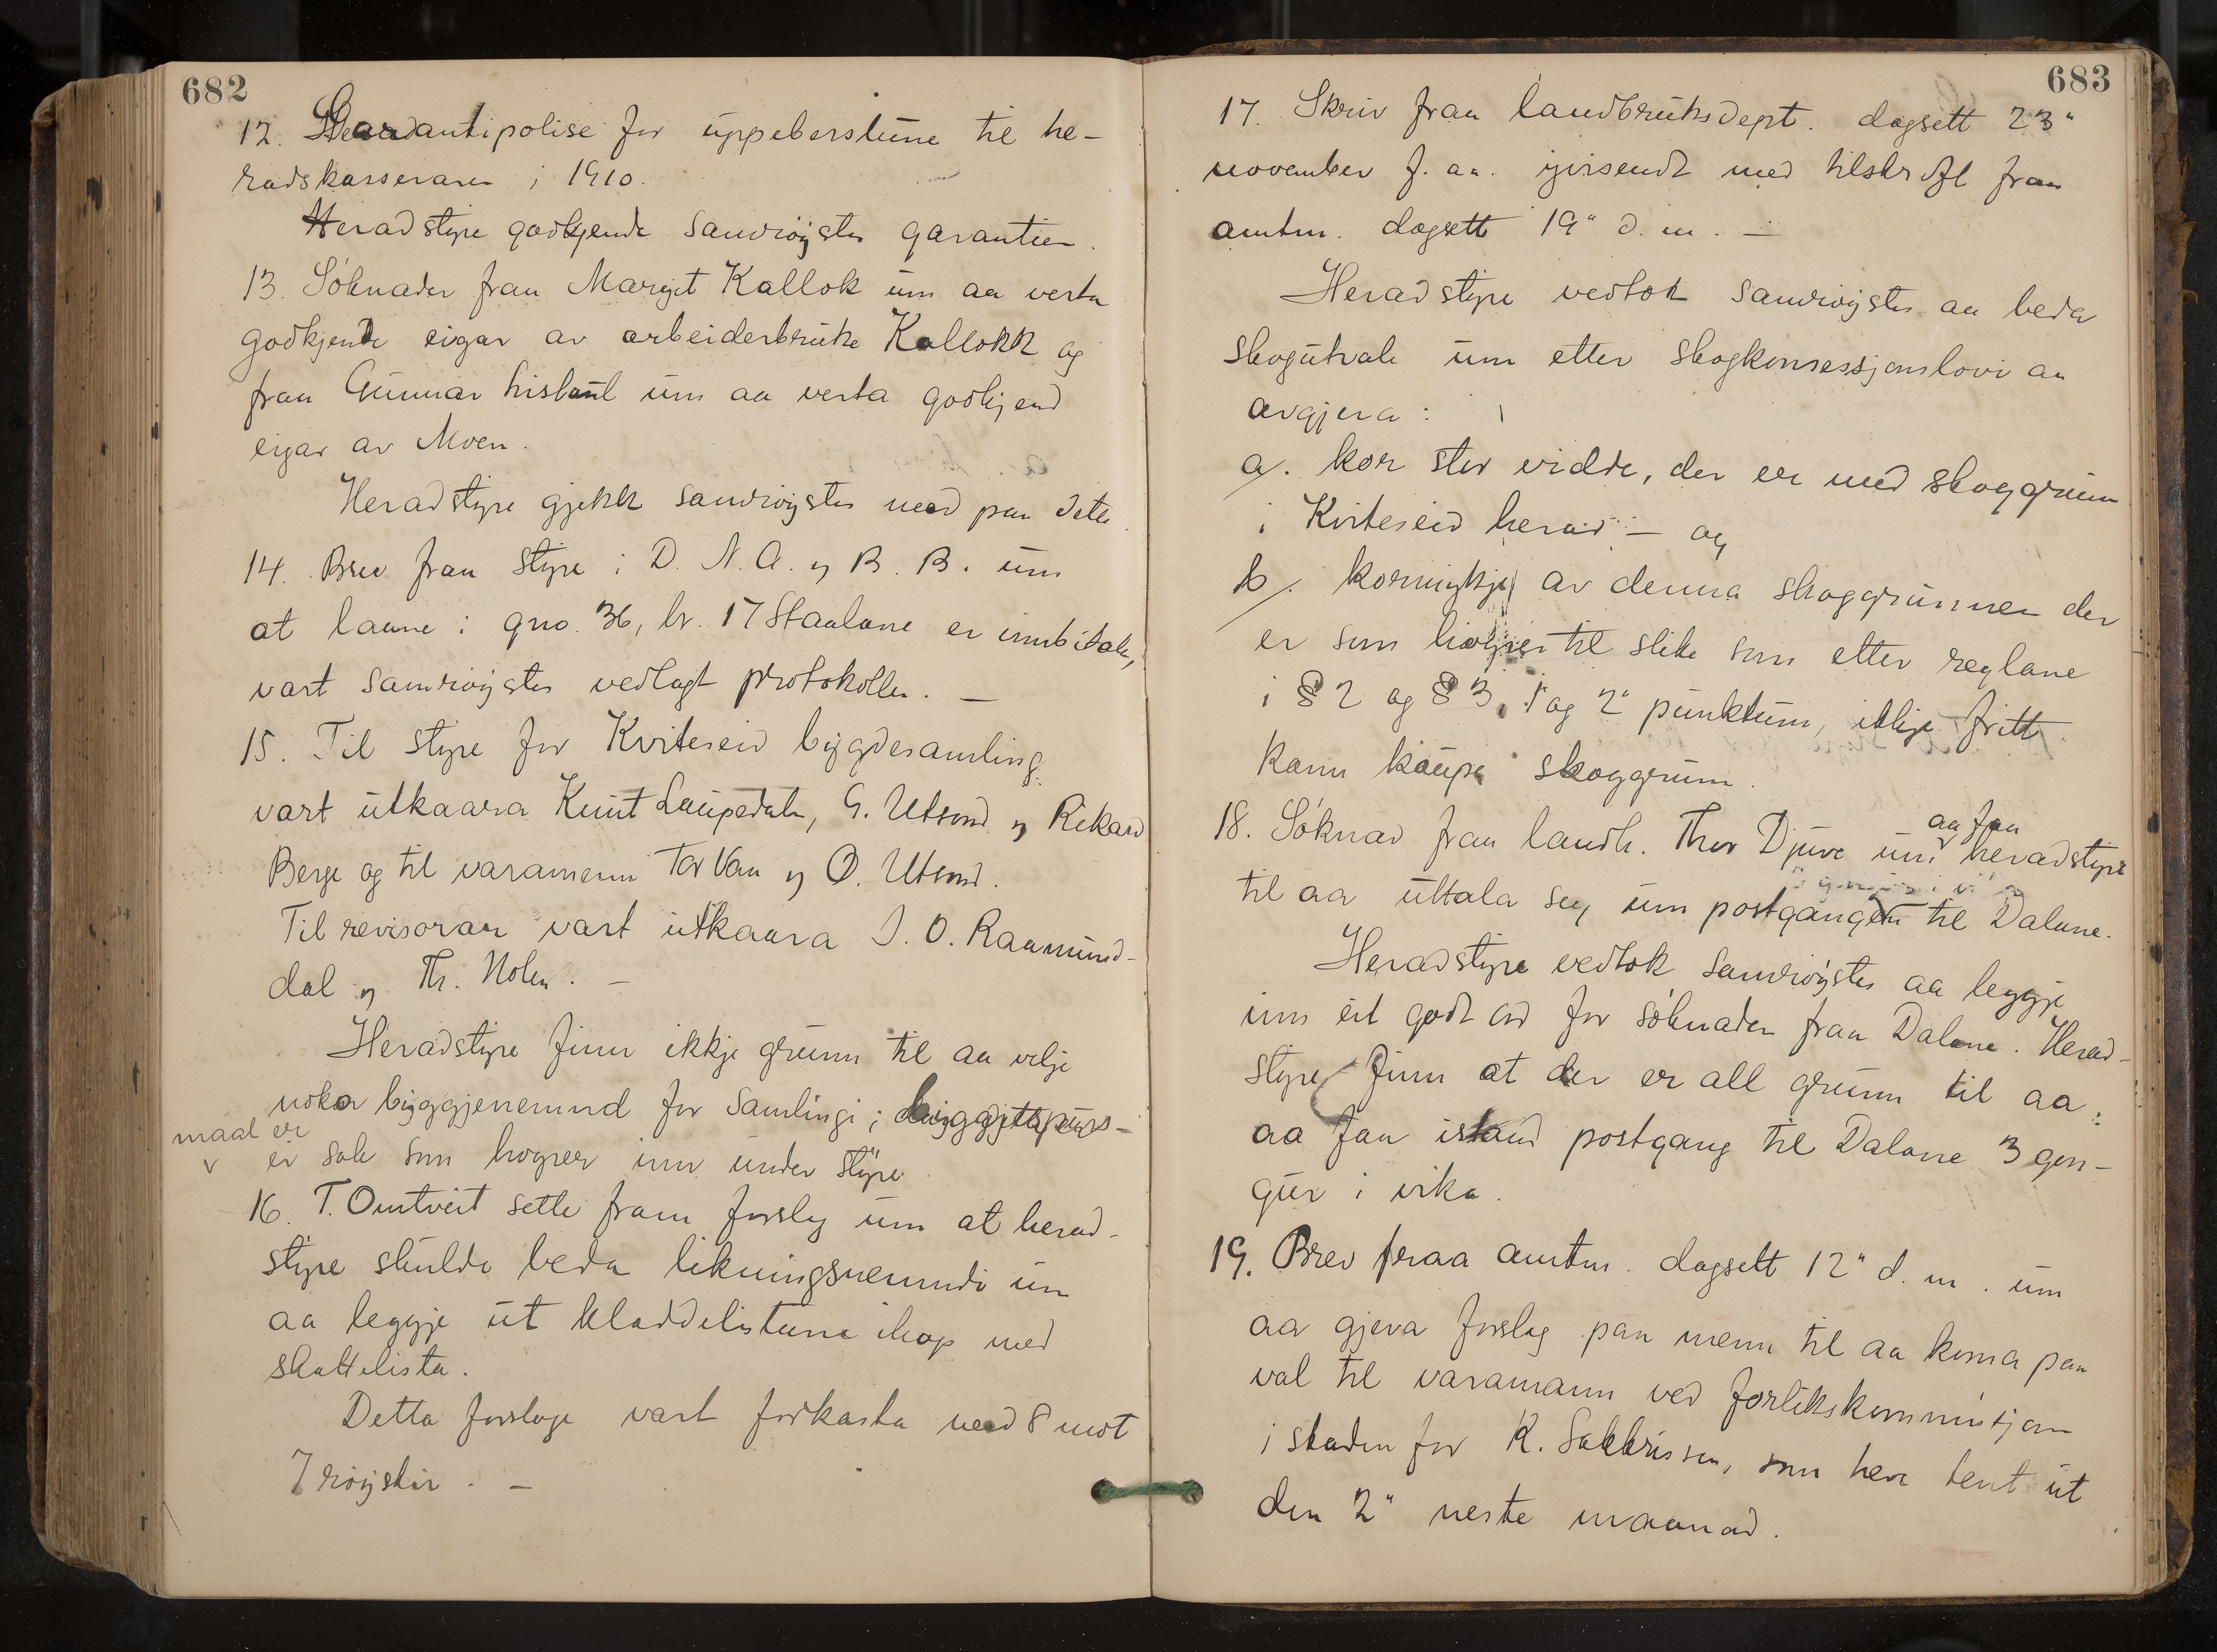 682
12. Garantipolise for uppeberslune til he-
radskasseraren i 1910.
Heradstyre godkjende samrøystes garantien.
13. Søknader fraa Margit Kallok um aa verta
godkjende eigar av arbeiderbruke Kallokk og
fraa Gunnar um aa verta godkjend
eigar av Moen.
Heradstyre gjekk samrøystes med paa dette.
14. Brev fraa styre i D. N. A. og B. B. um
at laane i gno. 36, br. 17 Staalane er innbitalt,
vart samrøystes vedlagt protokollen. —
15. Til styre for Kviteseid bygdesamling
vart utkaara Knut Laupedalen, G. Utsond og Rikard
Berge og til varamenn Tor Vaa og O. Utsond.
Til revisorar vart utkaara J. O. Raamund-
dal og Th. Nolen. —
Heradstyre finn ikkje grunn til aa velje
nokor byggjenemnd for samlingi; byggjespurs-
maal er
er sak som høyrer inn under styre.
16. T. Omtveit sette fram forslag um at herad-
styre skulde beda likningsnemndi um
aa leggje ut kladdelistune ihop med
skattelista.
Detta forslage vart forkasta med 8 mot
7 røyster. —
683
17. Skriv fraa landbruksdept. dagsett 23"
november f. aa. yvisendt med tilskrift fraa
amtm. dagsett 19" d. m. —
Heradstyre vedtok samrøystes aa beda
skogutvale um etter skogkonsessjonslovi aa
avgjera:
a/. kor stor vidde, der er med skoggrunn
i Kviteseid herad — og
b/. kormykje av denna skoggrunnen der
er som høyrer til slike som etter reglane
i § 2 og § 3, 1" og 2" punktum, ikkje fritt
kann kaupe skoggrunn.
18. Søknad fraa landh. Thor Djuve um aa faa heradstyre
til aa uttala seg um postgangen til Dalane.
Heradstyre vedtok samrøystes aa leggje
inn eit godt ord for søknaden fraa Dalane. Herad-
styre finn at der er all grunn til aa:
aa faa istand postgang til Dalane 3 gon-
gur i vika.
19. Brev fraa amtm. dagsett 12" d. m. um
aa gjeva forslag paa menn til aa koma paa
val til varamann ved forlikskommisjon
i staden for K. Sakkrissen, som heve tent ut
den 2" neste maanad.